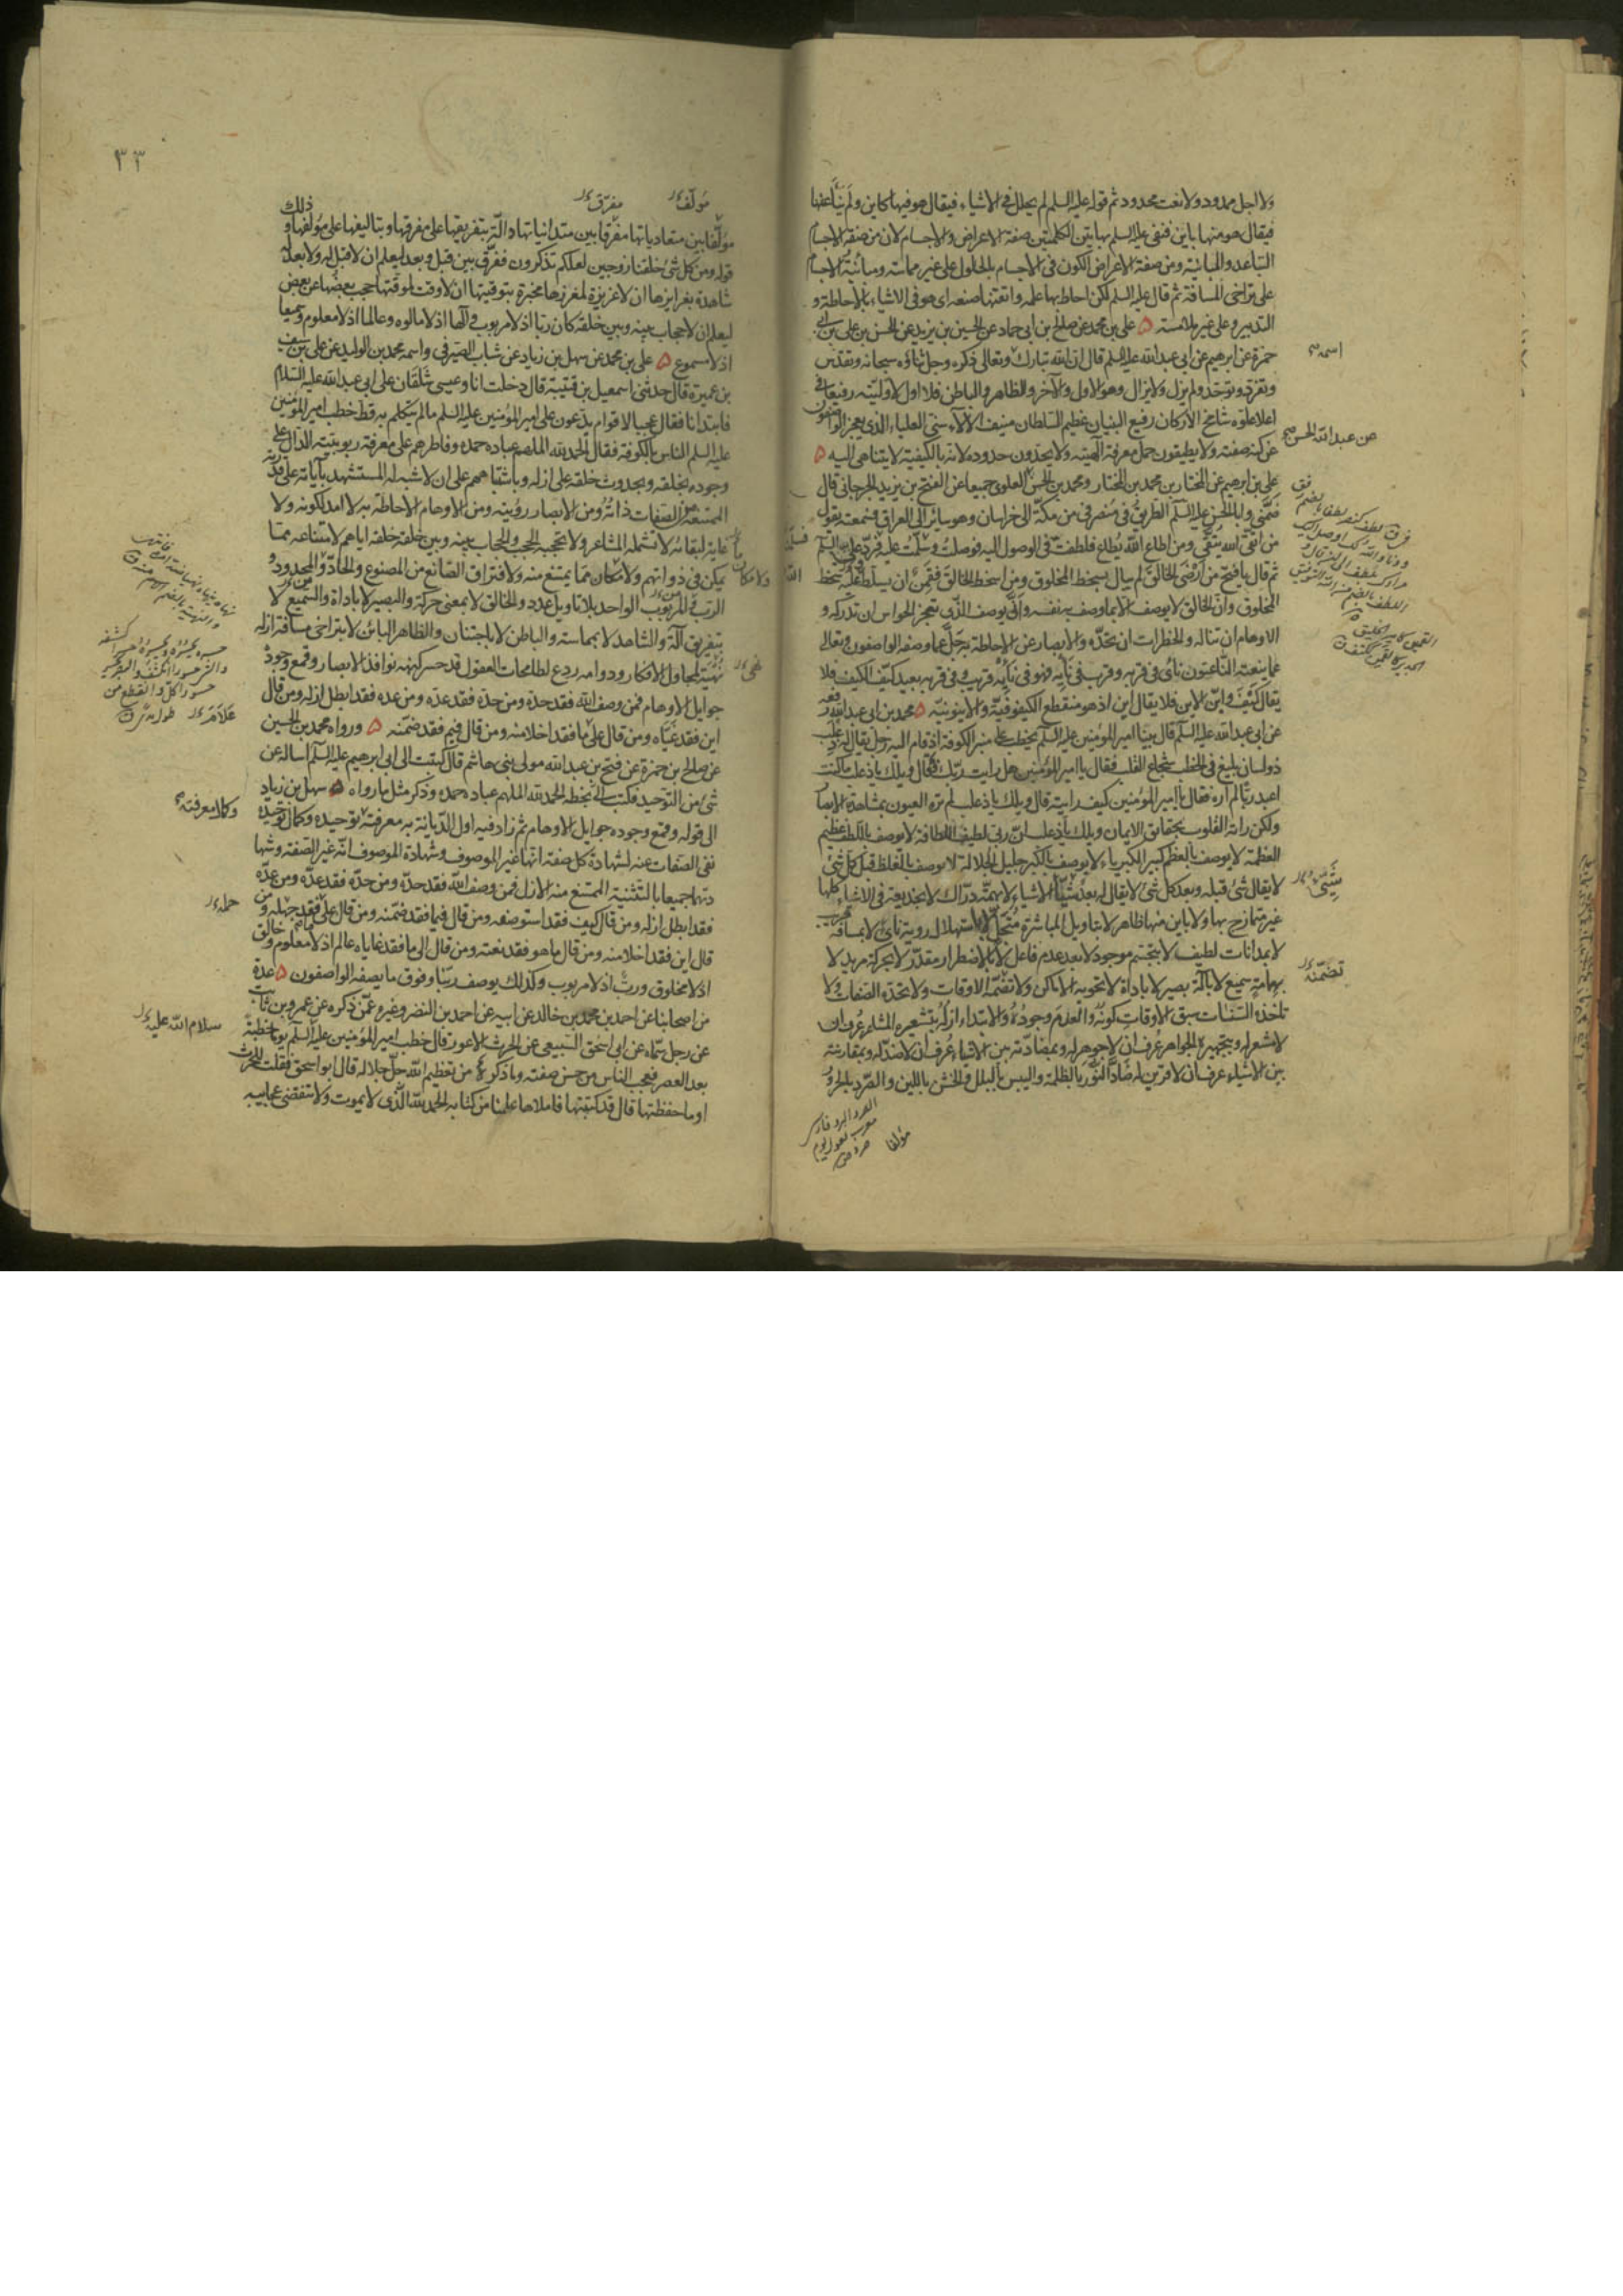 ولا اجل ممدود ولا نعت محدود ثم قوله عليه السلم لم يحلل في الاشياء فيقال هو فيها كاين ولم ينأ عنها
فيقال هو منها باين فنفى عليه السلم بهاتين الكلمتين صفة الاعراض والاجسام لان من صفة الاجسام
التباعد والمباينة ومن صفة الاعراض الكون في الاجسام بالحلول على غير مماسة ومباينة الاجسام
على تراخي المسافة ثم قال عليه السلم لكن احاط بها علمه واتقنها صنعه اى هو في الاشياء بالاحاطة و
التدبير وعلى غير ملامسة ٥ على بن محمد عن صالح بن ابى حماد عن الحسين بن يزيد عن الحسن بن على بن ابى
حمزة عن ابرهيم عن ابى عبدالله عليه السلم قال ان الله تبارك وتعالى ذكره وجل ثناؤه سبحانه وتقدس
وتفرد وتوحد ولم يزل ولا يزال وهو الاول والآخر والظاهر والباطن فلا اول لاوليته رفيعا في
اعلا علوه شامخ الاركان رفيع البنيان عظيم السلطان منيف الآلاء سنى العلياء الذى يعجز الواصفون
عن كنه صفته ولا يطيقون حمل معرفة الهيته ولا يحدون حدوده لانه بالكيفية لا يتناهى اليه ٥
على بن ابرهيم عن المختار بن محمد بن المختار ومحمد بن الحسن العلوى جميعا عن الفتح بن يزيد الجرجانى قال
ضمنى وابا الحسن عليه السلم الطريق في منصرفى من مكة الى خراسان وهو سائر الى العراق فسمعته يقول
من اتقى الله يتقى ومن اطاع الله يطاع فلطفت في الوصول اليه فوصلت وسلمت عليه فرد على السلم
ثم قال يا فتح من ارضى الخالق لم يبال بسخط المخلوق ومن اسخط الخالق فقمن ان يسلط الله عليه سخط
المخلوق وان الخالق لا يوصف الا بما وصف به نفسه وانى يوصف الذى تعجز الحواس ان تدركه و
الاوهام ان تناله والخطرات ان تحده والابصار عن الاحاطة به جل عما وصفه الواصفون وتعالى
عما ينعته الناعتون نأى في قربه وقرب في نأيه فهو في نأيه قريب وفي قربه بعيد كيف الكيف فلا
يقال كيف واين الاين فلا يقال اين اذ هو منقطع الكيفوفية والاينونية ٥ محمد بن ابى عبدالله رفعه
عن ابى عبدالله عليه السلم قال بينا امير المؤمنين عليه السلم يخطب على منبر الكوفة اذ قام اليه رجل يقال له ذعلب
ذو لسان بليغ في الخطب شجاع القلب فقال يا امير المؤمنين هل رايت ربك فقال ويلك يا ذعلب ما كنت
اعبد ربا لم اره فقال يا امير المؤمنين كيف رايته قال ويلك يا ذعلب لم تره العيون بمشاهدة الابصار
ولكن راته القلوب بحقايق الايمان ويلك يا ذعلب ان ربى لطيف اللطافة لا يوصف باللطف عظيم
العظمة لا يوصف بالعظم كبير الكبرياء لا يوصف بالكبر جليل الجلالة لا يوصف بالغلظ قبل كل شئ
لا يقال شئ قبله وبعد كل شئ لا يقال له بعد شيأ الاشياء لا بهمة دراك لا بخديعة في الاشياء كلها
غير متمازج بها ولا باين منها ظاهر لا بتاويل المباشرة متجل لا باستهلال روية ناء لا بمسافة قريب
لا بمداناة لطيف لا بتجسم موجود لا بعد عدم فاعل لا باضطرار مقدر لا بحركة مريد لا
بهمامة سميع لا بآلة بصير لا باداة لا تحويه الاماكن ولا تضمه الاوقات ولا تحده الصفات ولا
تاخذه السنات سبق الاوقات كونه والعدم وجوده والابتداء ازله بتشعيره المشاعر عرف ان
لا مشعر له وبتجهيره الجواهر عرف ان لا جوهر له وبمضادته بين الاشياء عرف ان لا ضد له وبمقارنته
بين الاشياء عرف ان لا قرين له ضاد النور بالظلمة واليبس بالبلل والخشن باللين والصرد بالحرور
مؤلفا
اسمه
عن عبدالله الحسن
تضمنه
٣٣
مؤلف
مفرق
مؤلفا بين متعادياتها مفرقا بين متدانياتها دالة بتفريقها على مفرقها وبتاليفها على مؤلفها وذلك
قوله ومن كل شئ خلقنا زوجين لعلكم تذكرون ففرق بين قبل وبعد ليعلم ان لا قبل له ولا بعد له
شاهدة بغرايزها ان لا غريزة لمغرزها مخبرة بتوقيتها ان لا وقت لموقتها حجب بعضها عن بعض
ليعلم ان لا حجاب بينه وبين خلقه كان ربا اذ لا مربوب والها اذ لا مالوه وعالما اذ لا معلوم وسميعا
اذ لا مسموع ٥ على بن محمد عن سهل بن زياد عن شباب الصيرفى واسمه محمد بن الوليد عن على بن سيف
بن عميرة قال حدثنى اسمعيل بن قتيبة قال دخلت انا وعيسى شلقان على ابى عبدالله عليه السلام
فابتدانا فقال عجبا لاقوام يدعون على امير المؤمنين عليه السلم ما لم يتكلم به قط خطب امير المؤمنين
عليه السلم الناس بالكوفة فقال الحمد لله الملهم عباده حمده وفاطرهم على معرفة ربوبيته الدال على
وجوده بخلقه وبحدوث خلقه على ازله وباشتباههم على ان لا شبه له المستشهد بآياته على قدرته
الممتنعة من الصفات ذاته ومن الابصار رؤيته ومن الاوهام الاحاطة به لا امد لكونه ولا
غاية لبقائه لا تشمله المشاعر ولا تحجبه الحجب والحجاب بينه وبين خلقه خلقه اياهم لامتناعه مما
يمكن في ذواتهم ولا مكان مما يمتنع منه ولافتراق الصانع من المصنوع والحاد والمحدود و
الرب والمربوب الواحد بلا تاويل عدد والخالق لا بمعنى حركة والبصير لا باداة والسميع لا
بتفريق آلة والشاهد لا بمماسة والباطن لا باجتنان والظاهر الباين لا بتراخى مسافة ازله
نهية لمجاول الافكار ودوامه ردع لطامحات العقول قد حسر كنهه نوافذ الابصار وقمع وجوده
جوايل الاوهام فمن وصف الله فقد حده ومن حده فقد عده ومن عده فقد ابطل ازله ومن قال
اين فقد غياه ومن قال على ما فقد اخلا منه ومن قال فيم فقد ضمنه ٥ ورواه محمد بن الحسين
عن صالح بن حمزة عن فتح بن عبدالله مولى بنى هاشم قال كتبت الى ابى ابرهيم عليه السلم اساله عن
شئ من التوحيد فكتب الى بخطه الحمد لله الملهم عباده حمده وذكر مثل ما رواه ٥ سهل بن زياد
الى قوله وقمع وجوده جوايل الاوهام ثم زاد فيه اول الديانة به معرفته توحيده وكمال توحيده
نفى الصفات عنه لشهادة كل صفة انها غير الموصوف وشهادة الموصوف انه غير الصفة وشها
دتهما جميعا بالتثنية الممتنع منه الازل فمن وصف الله فقد حده ومن حده فقد عده ومن عده
فقد ابطل ازله ومن قال كيف فقد استوصفه ومن قال فيما فقد ضمنه ومن قال على ما فقد جهله ومن
قال اين فقد اخلا منه ومن قال ما هو فقد نعته ومن قال الى ما فقد غاياه عالم اذ لا معلوم وخالق
اذ لا مخلوق ورب اذ لا مربوب وكذلك يوصف ربنا وفوق ما يصفه الواصفون ٥ عدة
من اصحابنا عن احمد بن محمد بن خالد عن ابيه عن احمد بن النضر وغيره عمن ذكره عن عمرو بن ثابت
عن رجل سماه عن ابى اسحق السبيعى عن الحرث الاعور قال خطب امير المؤمنين عليه السلم يوما خطبة
بعد العصر فعجب الناس من حسن صفته وما ذكره من تعظيم الله جل جلاله قال ابو اسحق فقلت للحرث
اوما حفظتها قال قد كتبتها فاملاها علينا من كتابه الحمد لله الذى لا يموت ولا تنقضى عجايبه
وكمال معرفته
حمله
سلام الله عليه